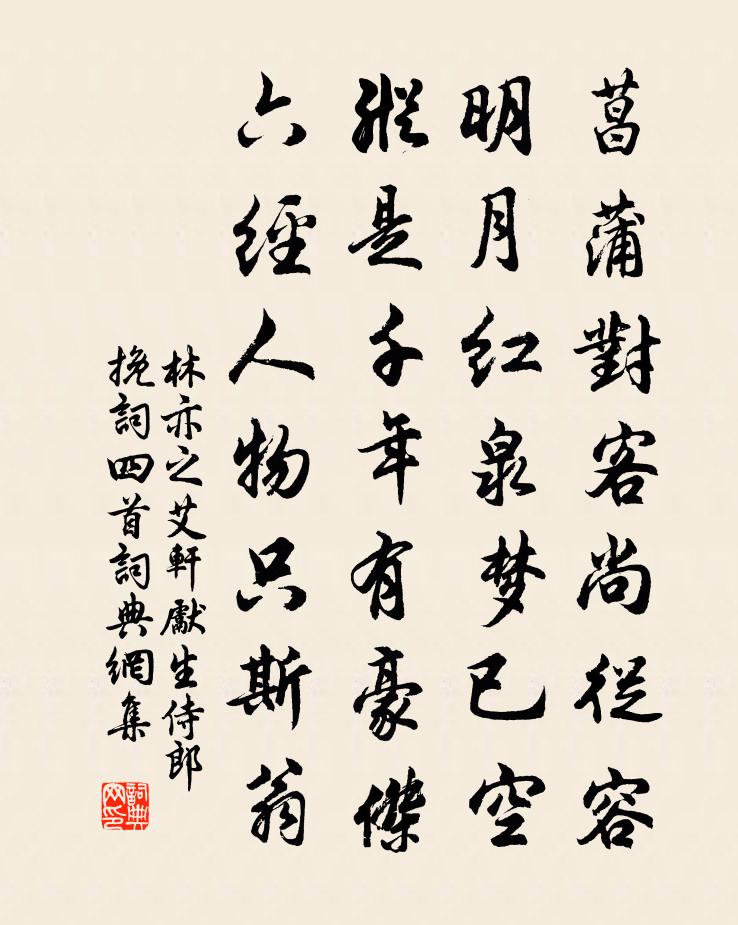 菖蒲對客尚從容
明月红泉梦已空
縱是千年有豪傑
六經人物只斯翁
林亦之艾軒獻生侍郎
挽詞四首詞典網集
詞典网印